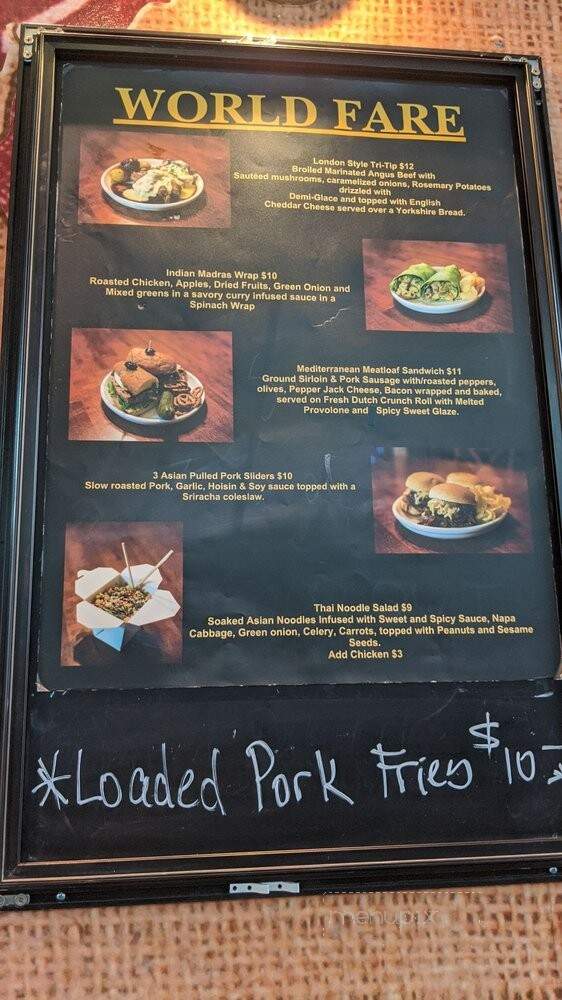 WORLD FARE
London Style Tri-Tip $12
Broiled Marinated Angus Beef with
Sautéed mushrooms, caramelized onions, Rosemary Potatoes
drizzled with
Demi-Glace and topped with English
Cheddar Cheese served over a Yorkshire Bread.
Indian Madras Wrap $10
Roasted Chicken, Apples, Dried Fruits, Green Onion and
Mixed greens in a savory curry infused sauce in a
Spinach Wrap
Mediterranean Meatloaf Sandwich $11
Ground Sirloin & Pork Sausage with/roasted peppers,
olives, Pepper Jack Cheese, Bacon wrapped and baked,
served on Fresh Dutch Crunch Roll with Melted
Provolone and Spicy Sweet Glaze.
3 Asian Pulled Pork Sliders $10
Slow roasted Pork, Garlic, Hoisin & Soy sauce topped with a
Sriracha coleslaw.
Thai Noodle Salad $9
Soaked Asian Noodles Infused with Sweet and Spicy Sauce, Napa
Cabbage, Green onion, Celery, Carrots, topped with Peanuts and Sesame
Seeds.
Add Chicken $3
*Loaded Pork Fries $10-*
menupix